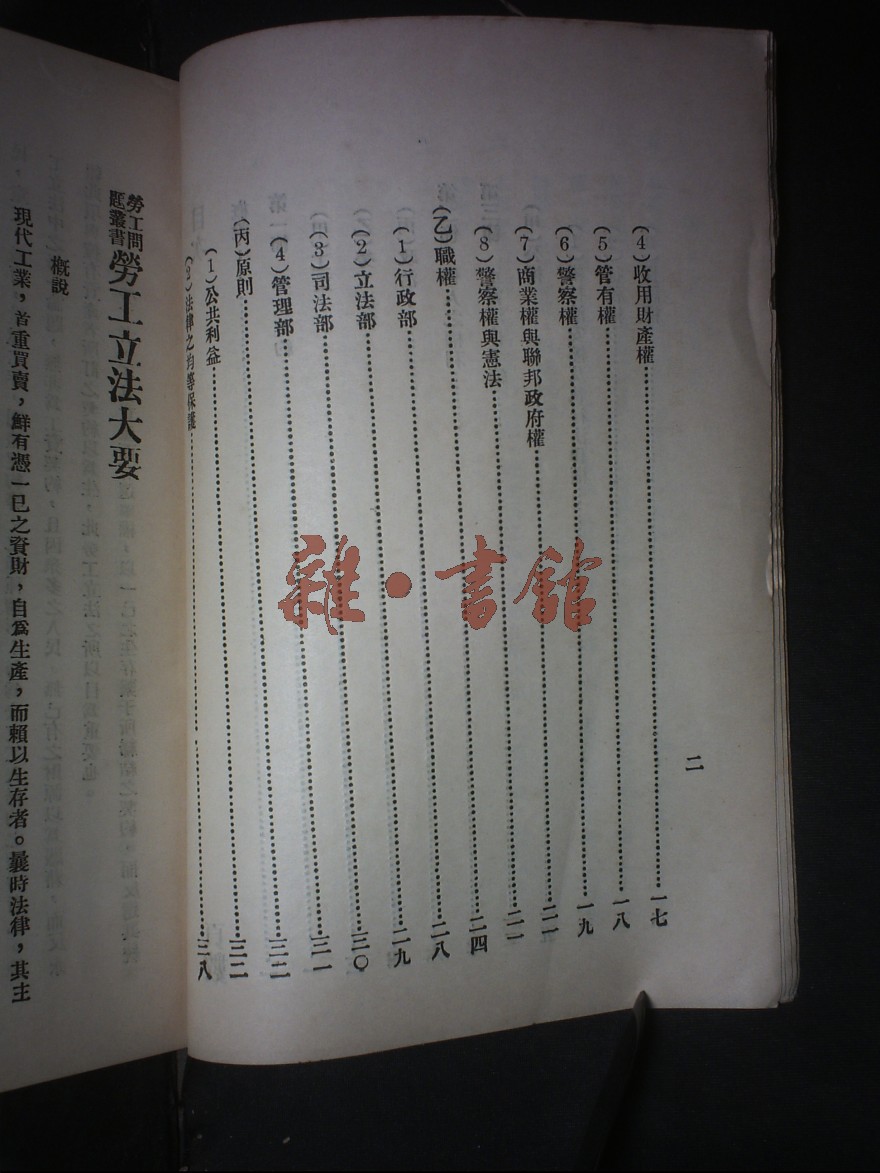 二
(4)收用財產權……一七
(5)管有權……一八
(6)警察權……一九
(7)商業權與聯邦政府權……二一
(8)警察權與憲法……二一
(乙)職權……二四
(1)行政部……二八
(2)立法部……二九
(3)司法部……三〇
(4)管理部……三一
(丙)原則……三二
(1)公共利益……三二
(2)法律之均等保護……三八
勞工問題叢書 勞工立法大要
概說
現代工業，首重買賣，鮮有憑一已之資財，自爲生產，而賴以生存者。曩時法律，其主
雜·書館